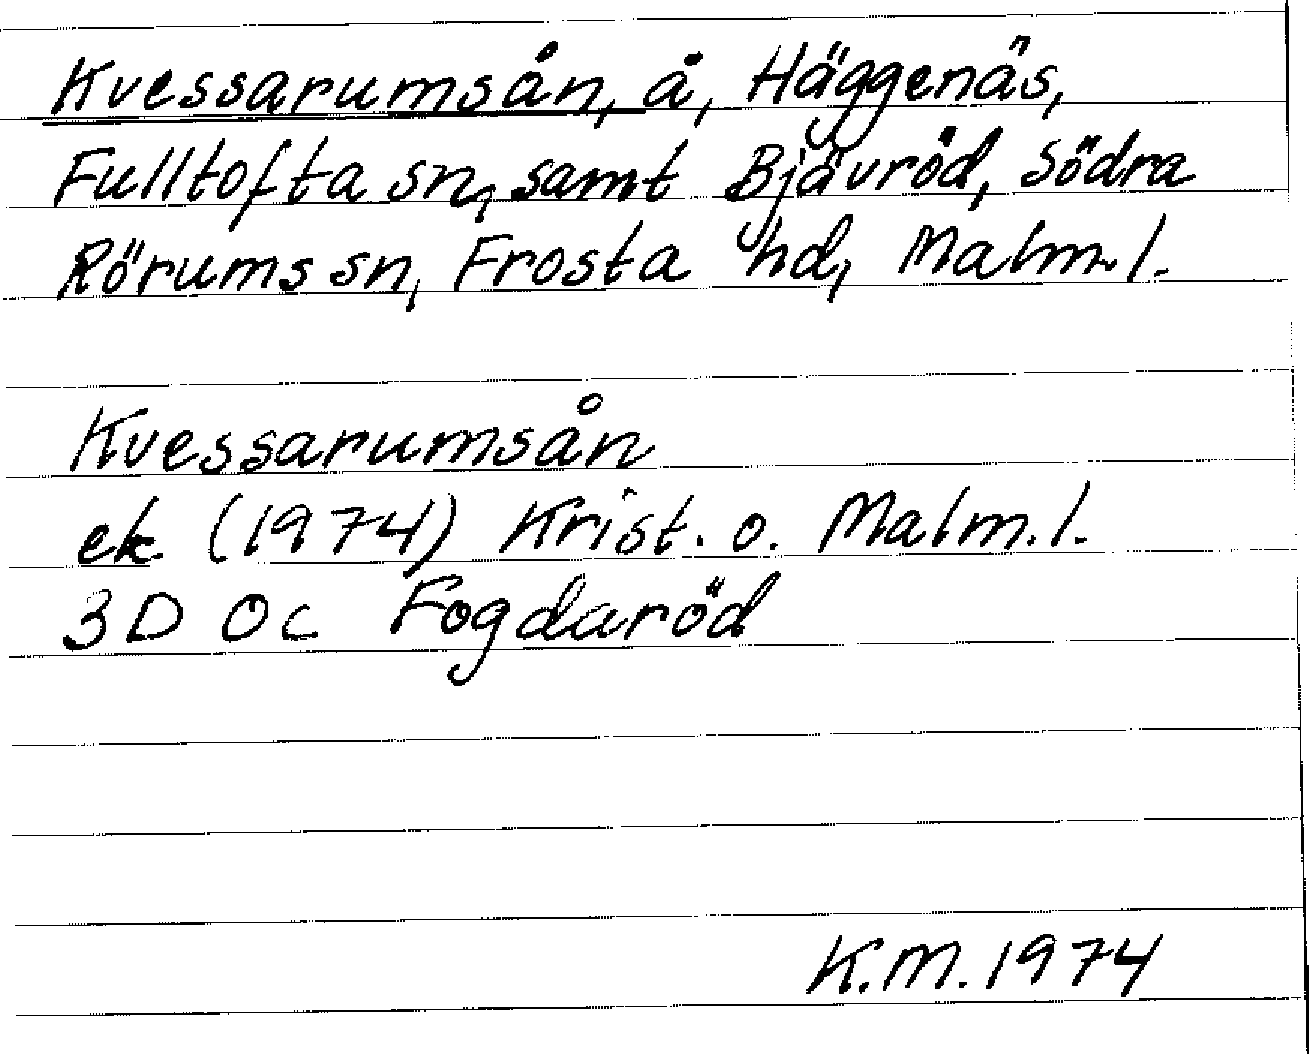 Kvessarumsån, å, Häggenäs,
Fulltofta sn, samt Bjävröd, Södra
Rörums sn, Frosta hd, Malm.l.
Kvessarumsån
ek (1974) Krist. o. Malm.l.
3D 0c Fogdaröd
K.M. 1974